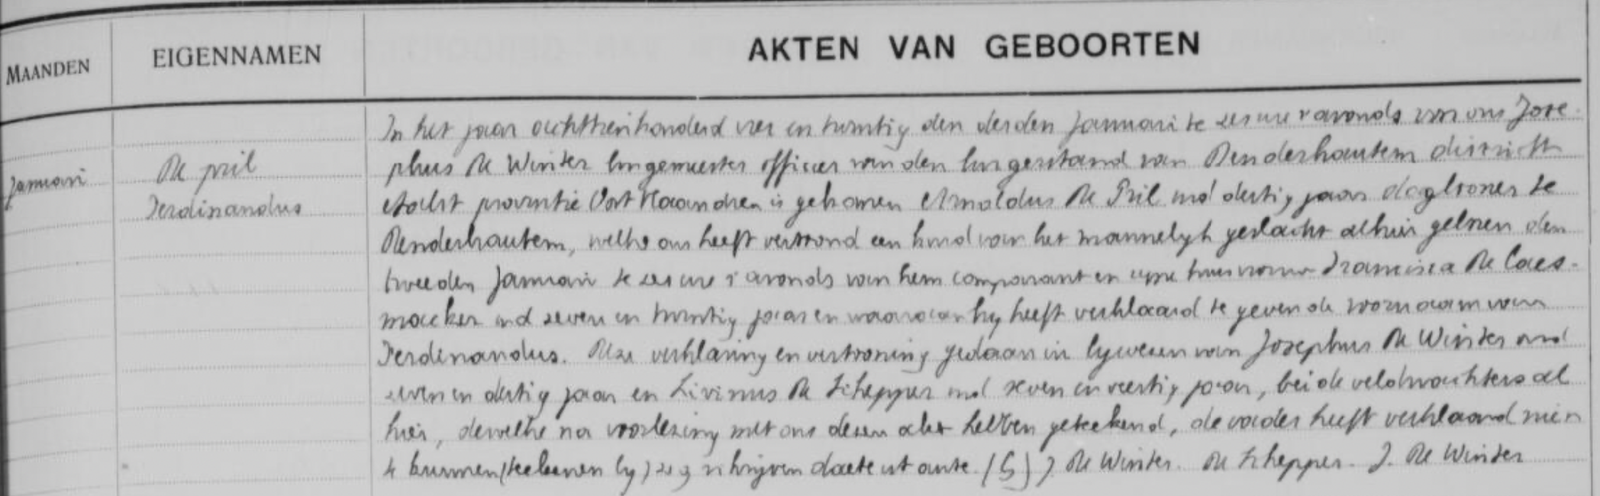 MAANDEN EIGENNAMEN AKTEN VAN GEBOORTEN
In het jaar achttienhonderd vier en twintig den derden Januari te ses ure s'avonds voor ons Jose-
Januari De pril phus De Winter burgemeester officier van den burgerstand van Denderhautem district
Ferdinandus Aelst provintie Oost Vlaandren is gekomen Arnoldus De Pril oud dertig jaar daglooner te
Denderhautem, welke ons heeft vertoond een kind van het mannelyk geslacht alhier geboren den
tweeden Januari te ses ure s'avonds van hem comparant en syne huisvrouw Francisca De Caes-
maeker oud seven en twintig jaar en waaraan hy heeft verklaard te geven de voornaam van
Ferdinandus. Deze verklaring en vertooning gedaan in bywesen van Josephus De Winter oud
seven en dertig jaar en Livinus De Schepper oud seven en veertig jaar, beide veldwachters al
hier, dewelke na voorlezing met ons desen akt hebben geteekend, de vader heeft verklaard niet
te kunnen schrijven daete ut ante. (G) J. De Winter. De Schepper. J. De Winter